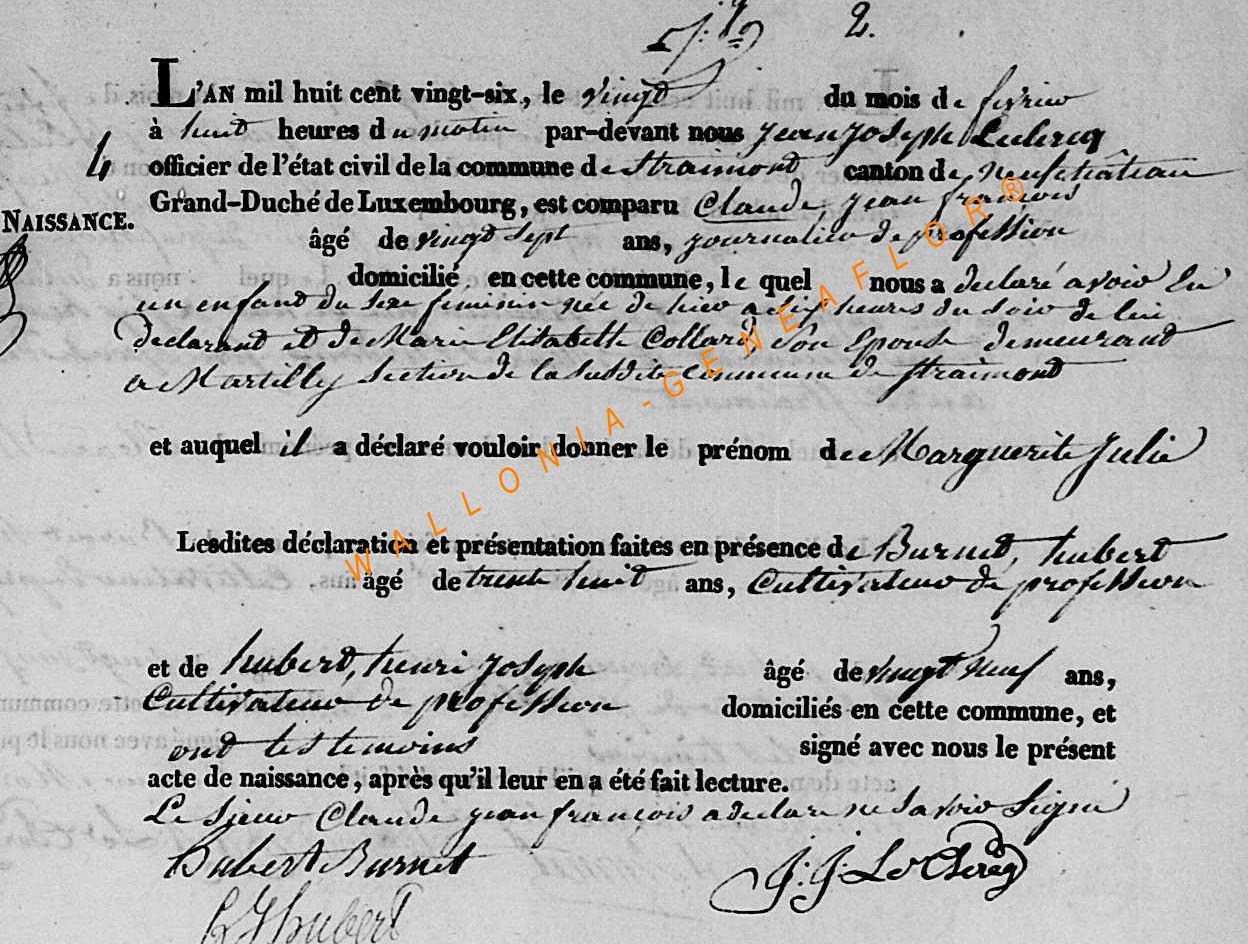 2.
L'AN mil huit cent vingt-six, le vingt du mois de fevrier
à huit heures du matin par-devant nous jean joseph Leclercq
4
officier de l'état civil de la commune de Straimont canton de neufchâteau
NAISSANCE.
Grand-Duché de Luxembourg, est comparu Claude, jean francois
âgé de vingt sept ans, journalier de profession
domicilié en cette commune, le quel nous a declaré avoir Eu
un enfant du sexe feminin née de hier a dix heures du soir de lui
declarant et de Marie Elisabeth Collard, Son Epouse demeurant
a Martilly section de la susdite commune de straimont
et auquel il a déclaré vouloir donner le prénom de Marguerite Julie
Lesdites déclaration et présentation faites en présence de Burnet, hubert
âgé de trente huit ans, Cultivateur de profession
et de hubert, henri joseph âgé de vingt neuf ans,
Cultivateur de profession domiciliés en cette commune, et
ont les temoins signé avec nous le présent
acte de naissance, après qu'il leur en a été fait lecture.
Le sieur Claude jean francois a declare ne savoir signé
Hubert Burnet J: J: Le Clercq
hubert
WALLONIA-GENEAFLOR®